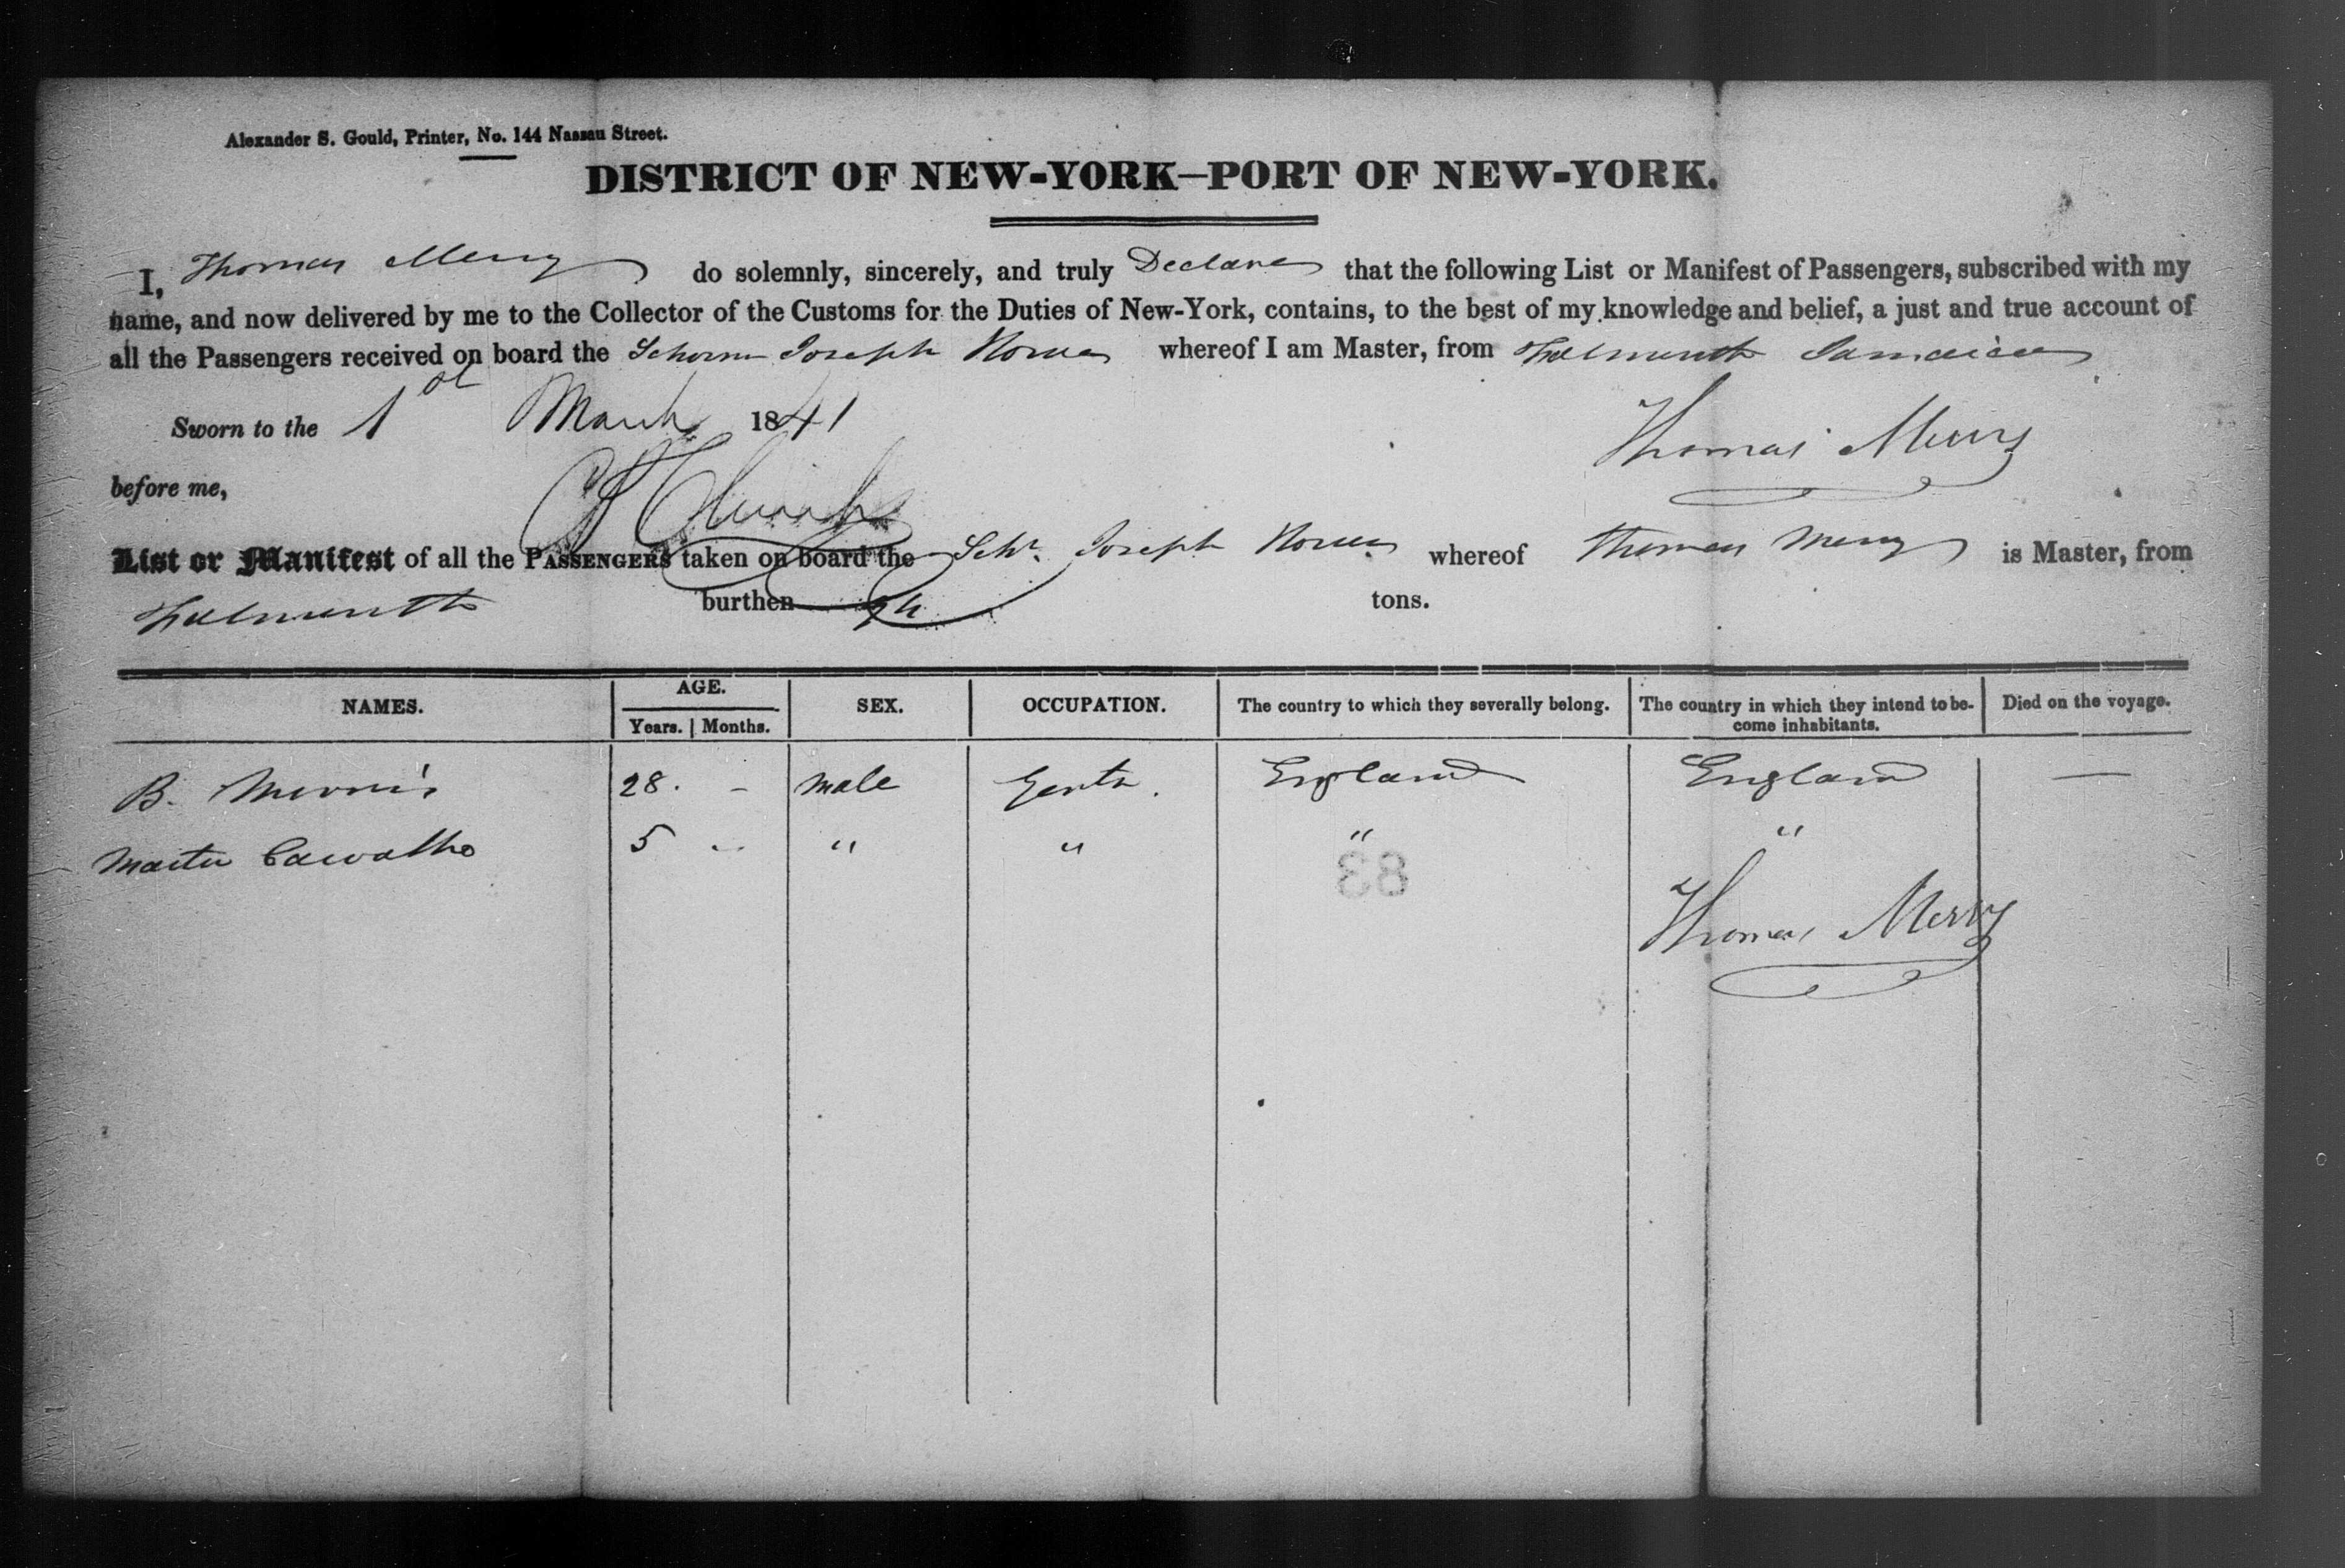 Alexander S. Gould, Printer, No. 144 Nassau Street.
DISTRICT OF NEW-YORK—PORT OF NEW-YORK.
I, Thomas Merry do solemnly, sincerely, and truly Declare that the following List or Manifest of Passengers, subscribed with my
name, and now delivered by me to the Collector of the Customs for the Duties of New-York, contains, to the best of my knowledge and belief, a just and true account of
all the Passengers received on board the Joseph whereof I am Master, from Falmouth Jamaica
Sworn to the 1st March 1841
Thomas Merry
before me,
List or Manifest of all the PASSENGERS taken on board the Schr. Joseph whereof Thomas Merry is Master, from
Falmouth burthen tons.
NAMES. AGE. SEX. OCCUPATION. The country to which they severally belong. The country in which they intend to be- Died on the voyage.
Years. Months. come inhabitants.
B. Morris 28. - male Gentn. England England —
Master Carvalho 5 " " " "
83
Thomas Merry